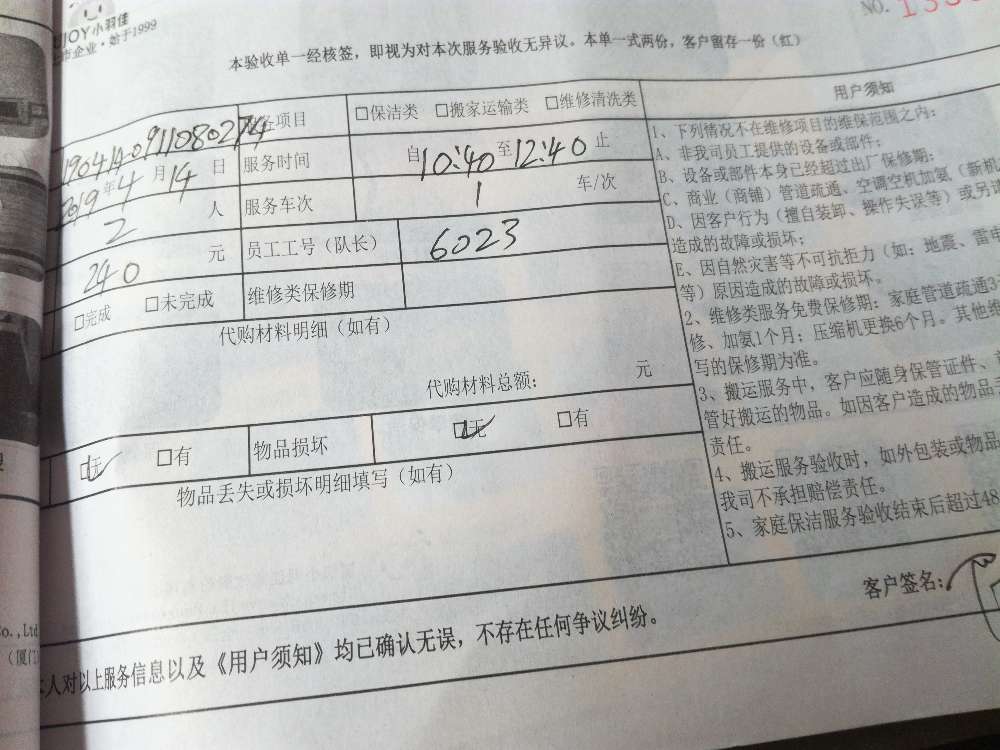 JOY小羽佳
市企业·始于1999
NO. 133
本验收单一经核签，即视为对本次服务验收无异议。本单一式两份，客户留存一份（红）
1904140911080274 务项目 □保洁类 □搬家运输类 □维修清洗类
2019年4月14日 服务时间 自10:40至12:40止
2人 服务车次 1 车/次
240元 员工工号（队长） 6023
□完成 □未完成 维修类保修期
代购材料明细（如有）
代购材料总额： 元
☑无 □有 物品损坏 ☑无 □有
物品丢失或损坏明细填写（如有）
用户须知
1、下列情况不在维修项目的维保范围之内：
A、非我司员工提供的设备或部件；
B、设备或部件本身已经超过出厂保修期；
C、商业（商铺）管道疏通、空调空机加氨（新机
D、因客户行为（擅自装卸、操作失误等）或另
造成的故障或损坏；
E、因自然灾害等不可抗拒力（如：地震、雷电
等）原因造成的故障或损坏。
2、维修类服务免费保修期：家庭管道疏通3
修、加氨1个月；压缩机更换6个月。其他维
写的保修期为准。
3、搬运服务中，客户应随身保管证件、
管好搬运的物品。如因客户造成的物品
责任。
4、搬运服务验收时，如外包装或物品
我司不承担赔偿责任。
5、家庭保洁服务验收结束后超过48
客户签名：
本人对以上服务信息以及《用户须知》均已确认无误，不存在任何争议纠纷。
Co.,Ltd
（厦门